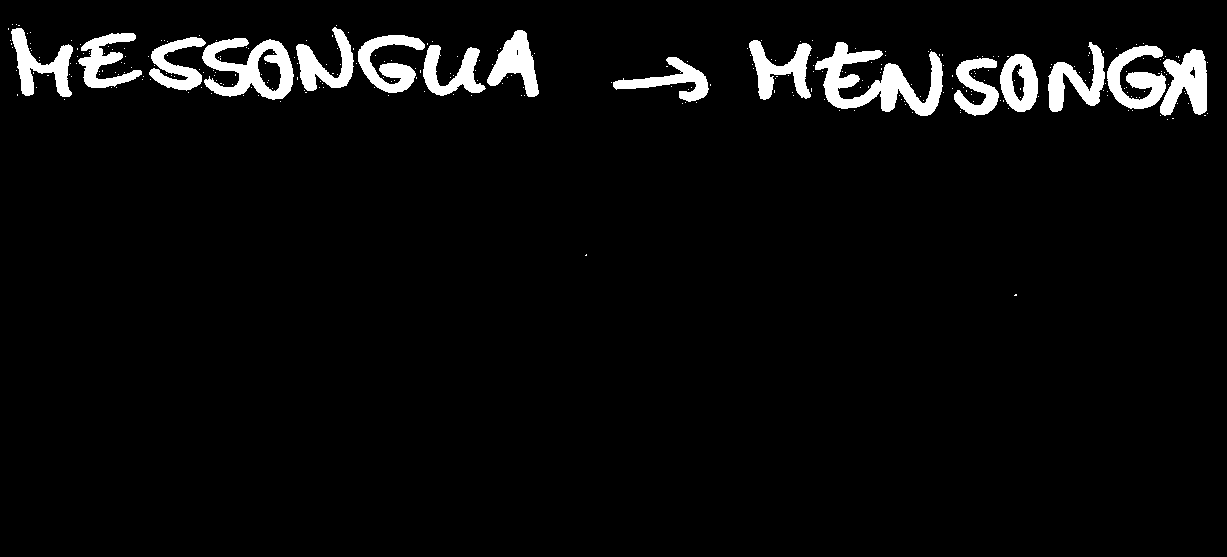 MESSONGUA → MENSONGA